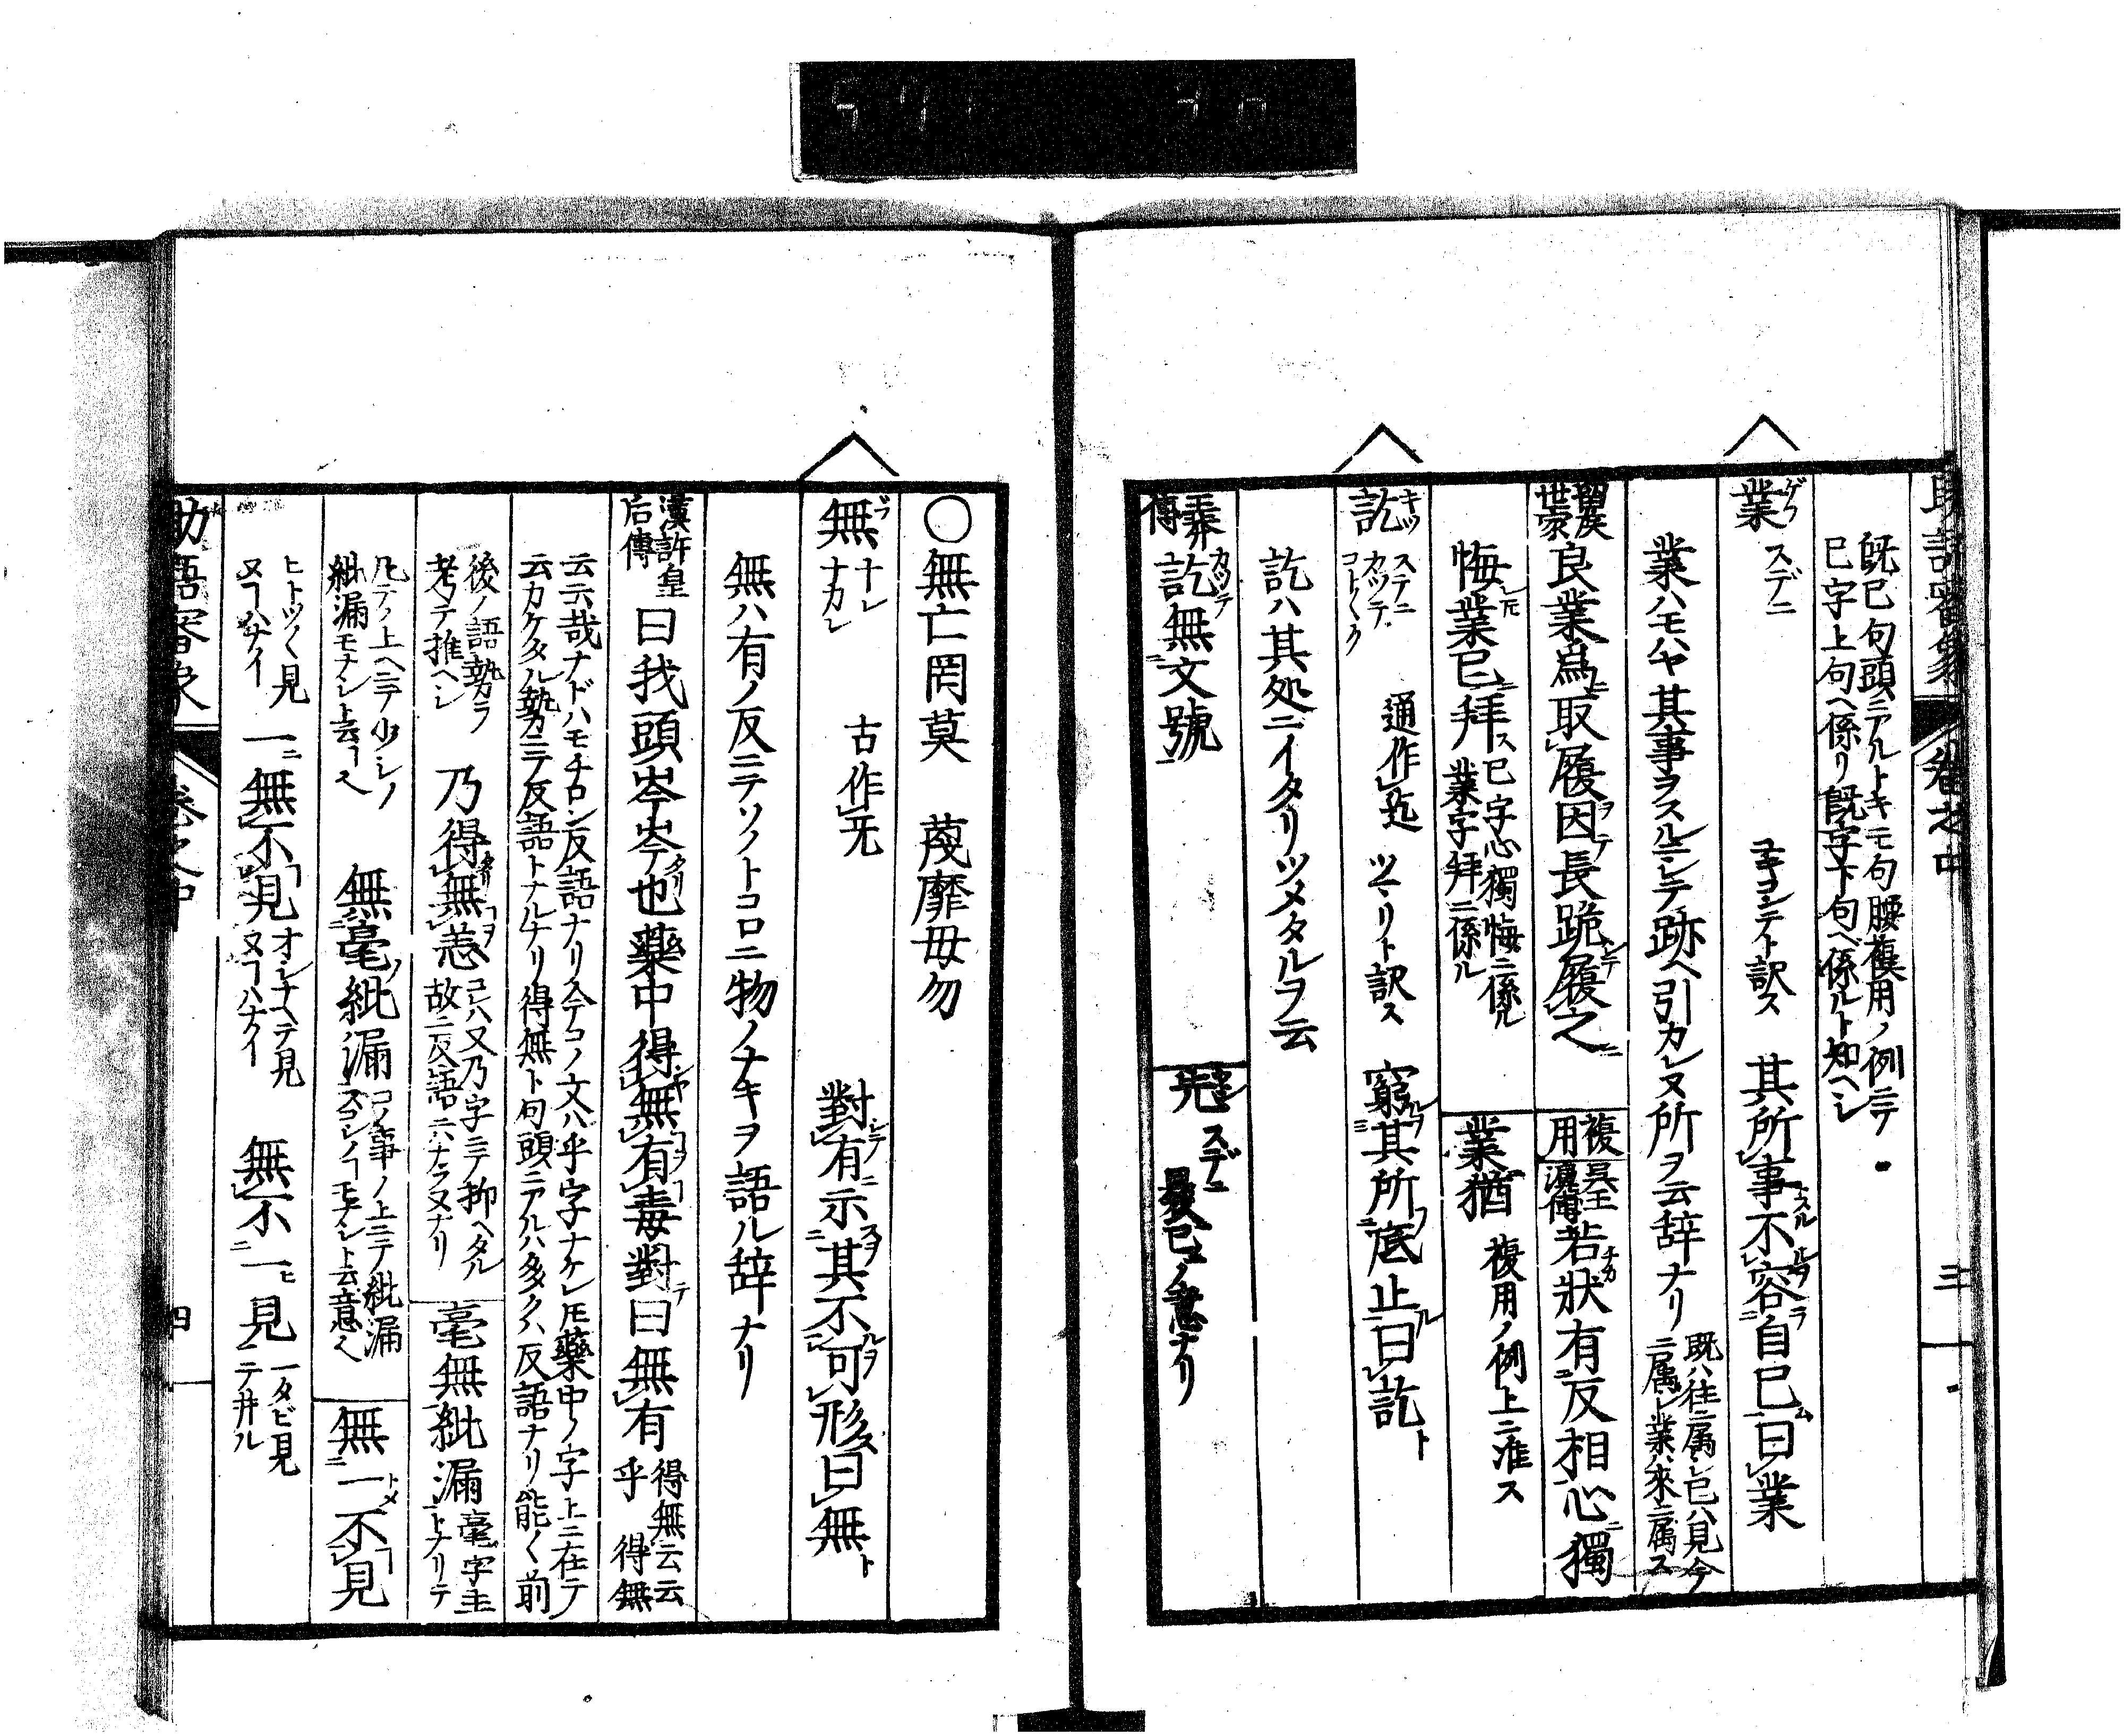 助語審象 卷之中 三
既已句頭ニアルトキモ句腰複用ノ例ニテ
已字上句ヘ係リ既字下句ヘ係ルト知ヘシ
業 ゲフ スデニ 其所事不容自已曰業
業ハモハヤ其事ヲスルニシテ跡ヘ引カレヌ所ヲ云辞ナリ 既ハ往ニ属シ已ハ見今ニ属シ業ハ來ニ属ス
留侯世家 良業為取履因長跪履之 複用 呉王濞傳 若状有反相心獨
悔業已拜 已字心獨悔ニ係ル業字拜ニ係ル 業猶 複用ノ例上ニ准ス
訖 キツ スデニ カツテ コトヾヽク 通作迄 ツマリト訳ス 窮其所底止曰訖
訖ハ其処ニイタリツメタルヲ云
莽傳 訖無文號 先 スデニ
〇無亡罔莫 蔑靡毋勿
無 ブ ナシ ナカレ 古作无 對有示其不可形曰無
無ハ有ノ反ニテソノトコロニ物ノナキヲ語ル辞ナリ
漢許皇后傳 曰我頭岑岑也藥中得無有毒對曰無有 得無云云乎 得無
云云哉ナドハモチロン反語ナリステコノ文ハ乎字ナケレ𪜈藥中ノ字上ニ在テ
云カケタル勢ニテ反語トナルナリ得無ト句頭ニアルハ多クハ反語ナリ能ク前
後ノ語勢ヲ考ヘテ推ヘシ 乃得無恙 コハ又乃字ニテ抑ヘタル故ニ反語ニハナラヌナリ 毫無紕漏 毫字主トナリテ
凡テノ上ヘニテ少シノ紕漏モナシト云フヘ 無毫紕漏 コノ事ノ上ニテ紕漏スコシノモナシト云意ヘ 無一不見
ヒトツヽヽ見ヌハナイ 一無不見 オシナヘテ見ヌハナイ 無不一見 一タビ見テ井ル
助語審象 卷之中 四